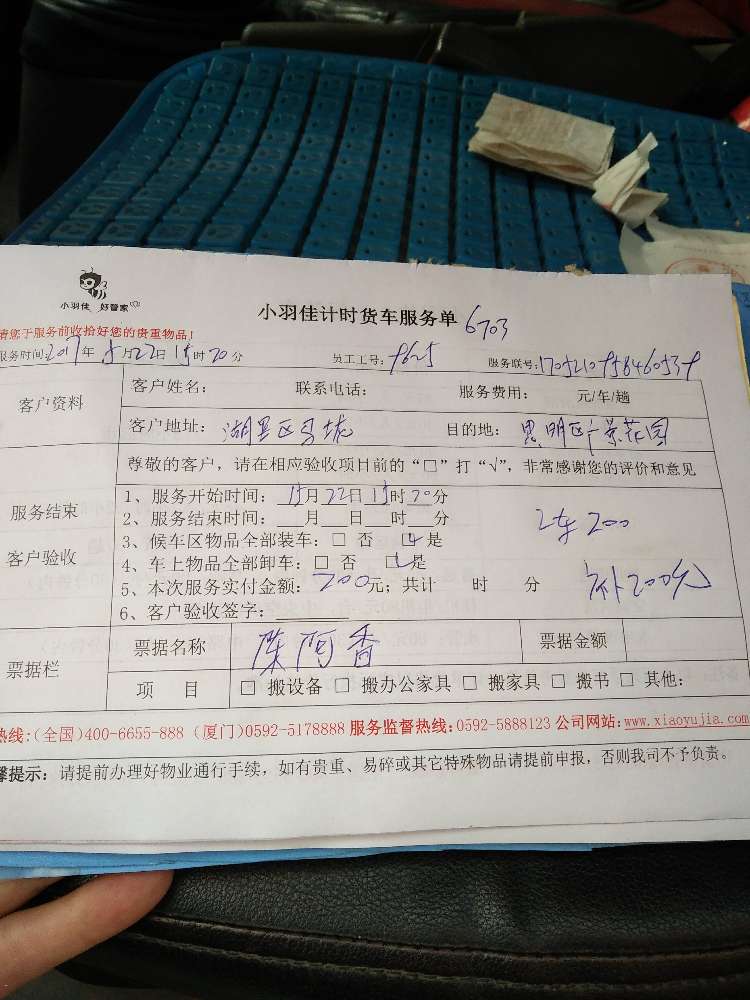 小羽佳 好管家
小羽佳计时货车服务单 6703
请您于服务前收拾好您的贵重物品!
服务时间:2017年5月22日15时20分 员工工号: 服务联号:
客户资料
客户姓名: 联系电话: 服务费用: 元/车/趟
客户地址:湖里区 目的地:思明区
尊敬的客户,请在相应验收项目前的“□”打“√”,非常感谢您的评价和意见
服务结束
客户验收
1、服务开始时间:5月22日15时20分
2、服务结束时间: 月 日 时 分
3、候车区物品全部装车:□ 否 □ 是
4、车上物品全部卸车:□ 否 □ 是
5、本次服务实付金额:200元;共计 时 分
6、客户验收签字:
2车200
补200元
票据栏
票据名称 陈阿香 票据金额
项 目 □ 搬设备 □ 搬办公家具 □ 搬家具 □ 搬书 □ 其他:
热线:(全国)400-6655-888 (厦门)0592-5178888 服务监督热线:0592-5888123 公司网站:www.xiaoyujia.com
馨提示:请提前办理好物业通行手续,如有贵重、易碎或其它特殊物品请提前申报,否则我司不予负责。